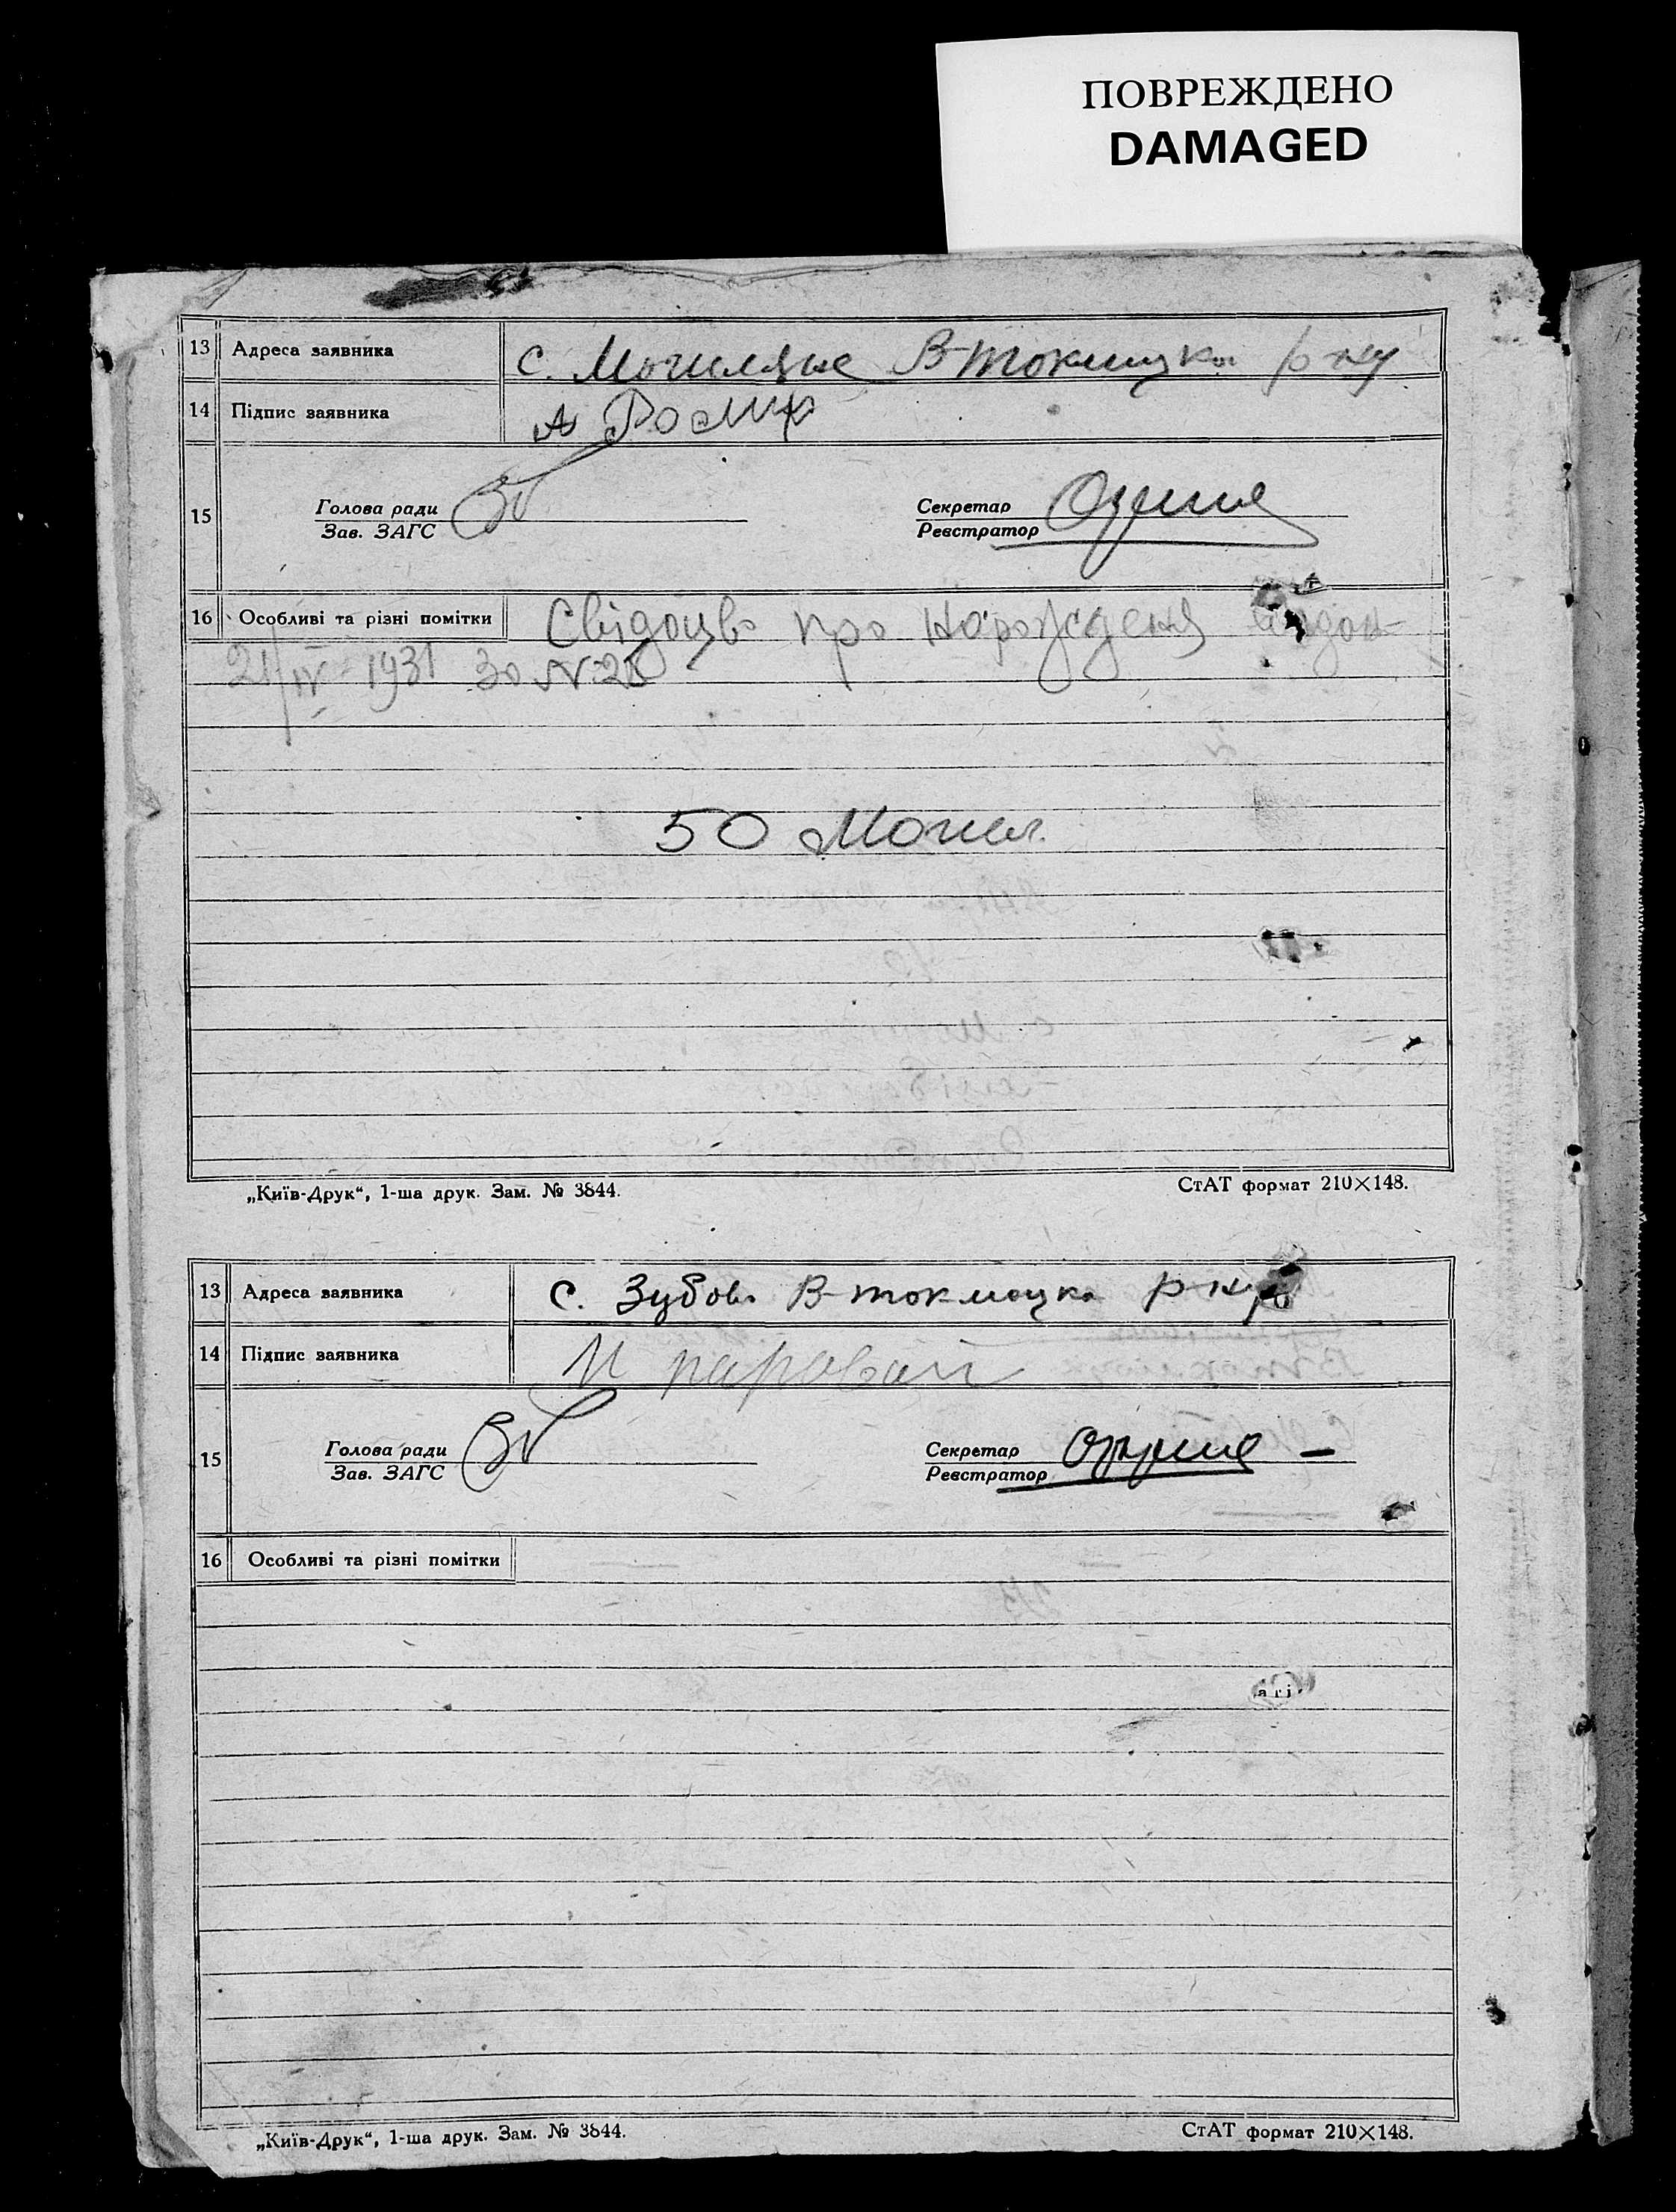 ПОВРЕЖДЕНО
DAMAGED
13 Адреса заявника с. Могиляне В-токмцька р-ну
14 Підпис заявника А
15 Голова ради Секретар
Зав. ЗАГС Реєстратор
16 Особливі та різні помітки Свідоцво про нарожденя
21/IV-1931 за N 28
50 Могил.
„Київ-Друк“, 1-ша друк. Зам. № 3844. СтАТ формат 210×148.
13 Адреса заявника с. Зубово В-токмацька р-ну
14 Підпис заявника
15 Голова ради Секретар
Зав. ЗАГС Реєстратор
16 Особливі та різні помітки
„Київ-Друк“, 1-ша друк. Зам. № 3844. СтАТ формат 210×148.